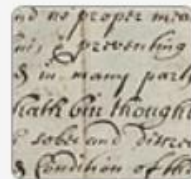 nd no proper mea
preventing
& in many part
hath bin thought
sober and Discre
Condition of th